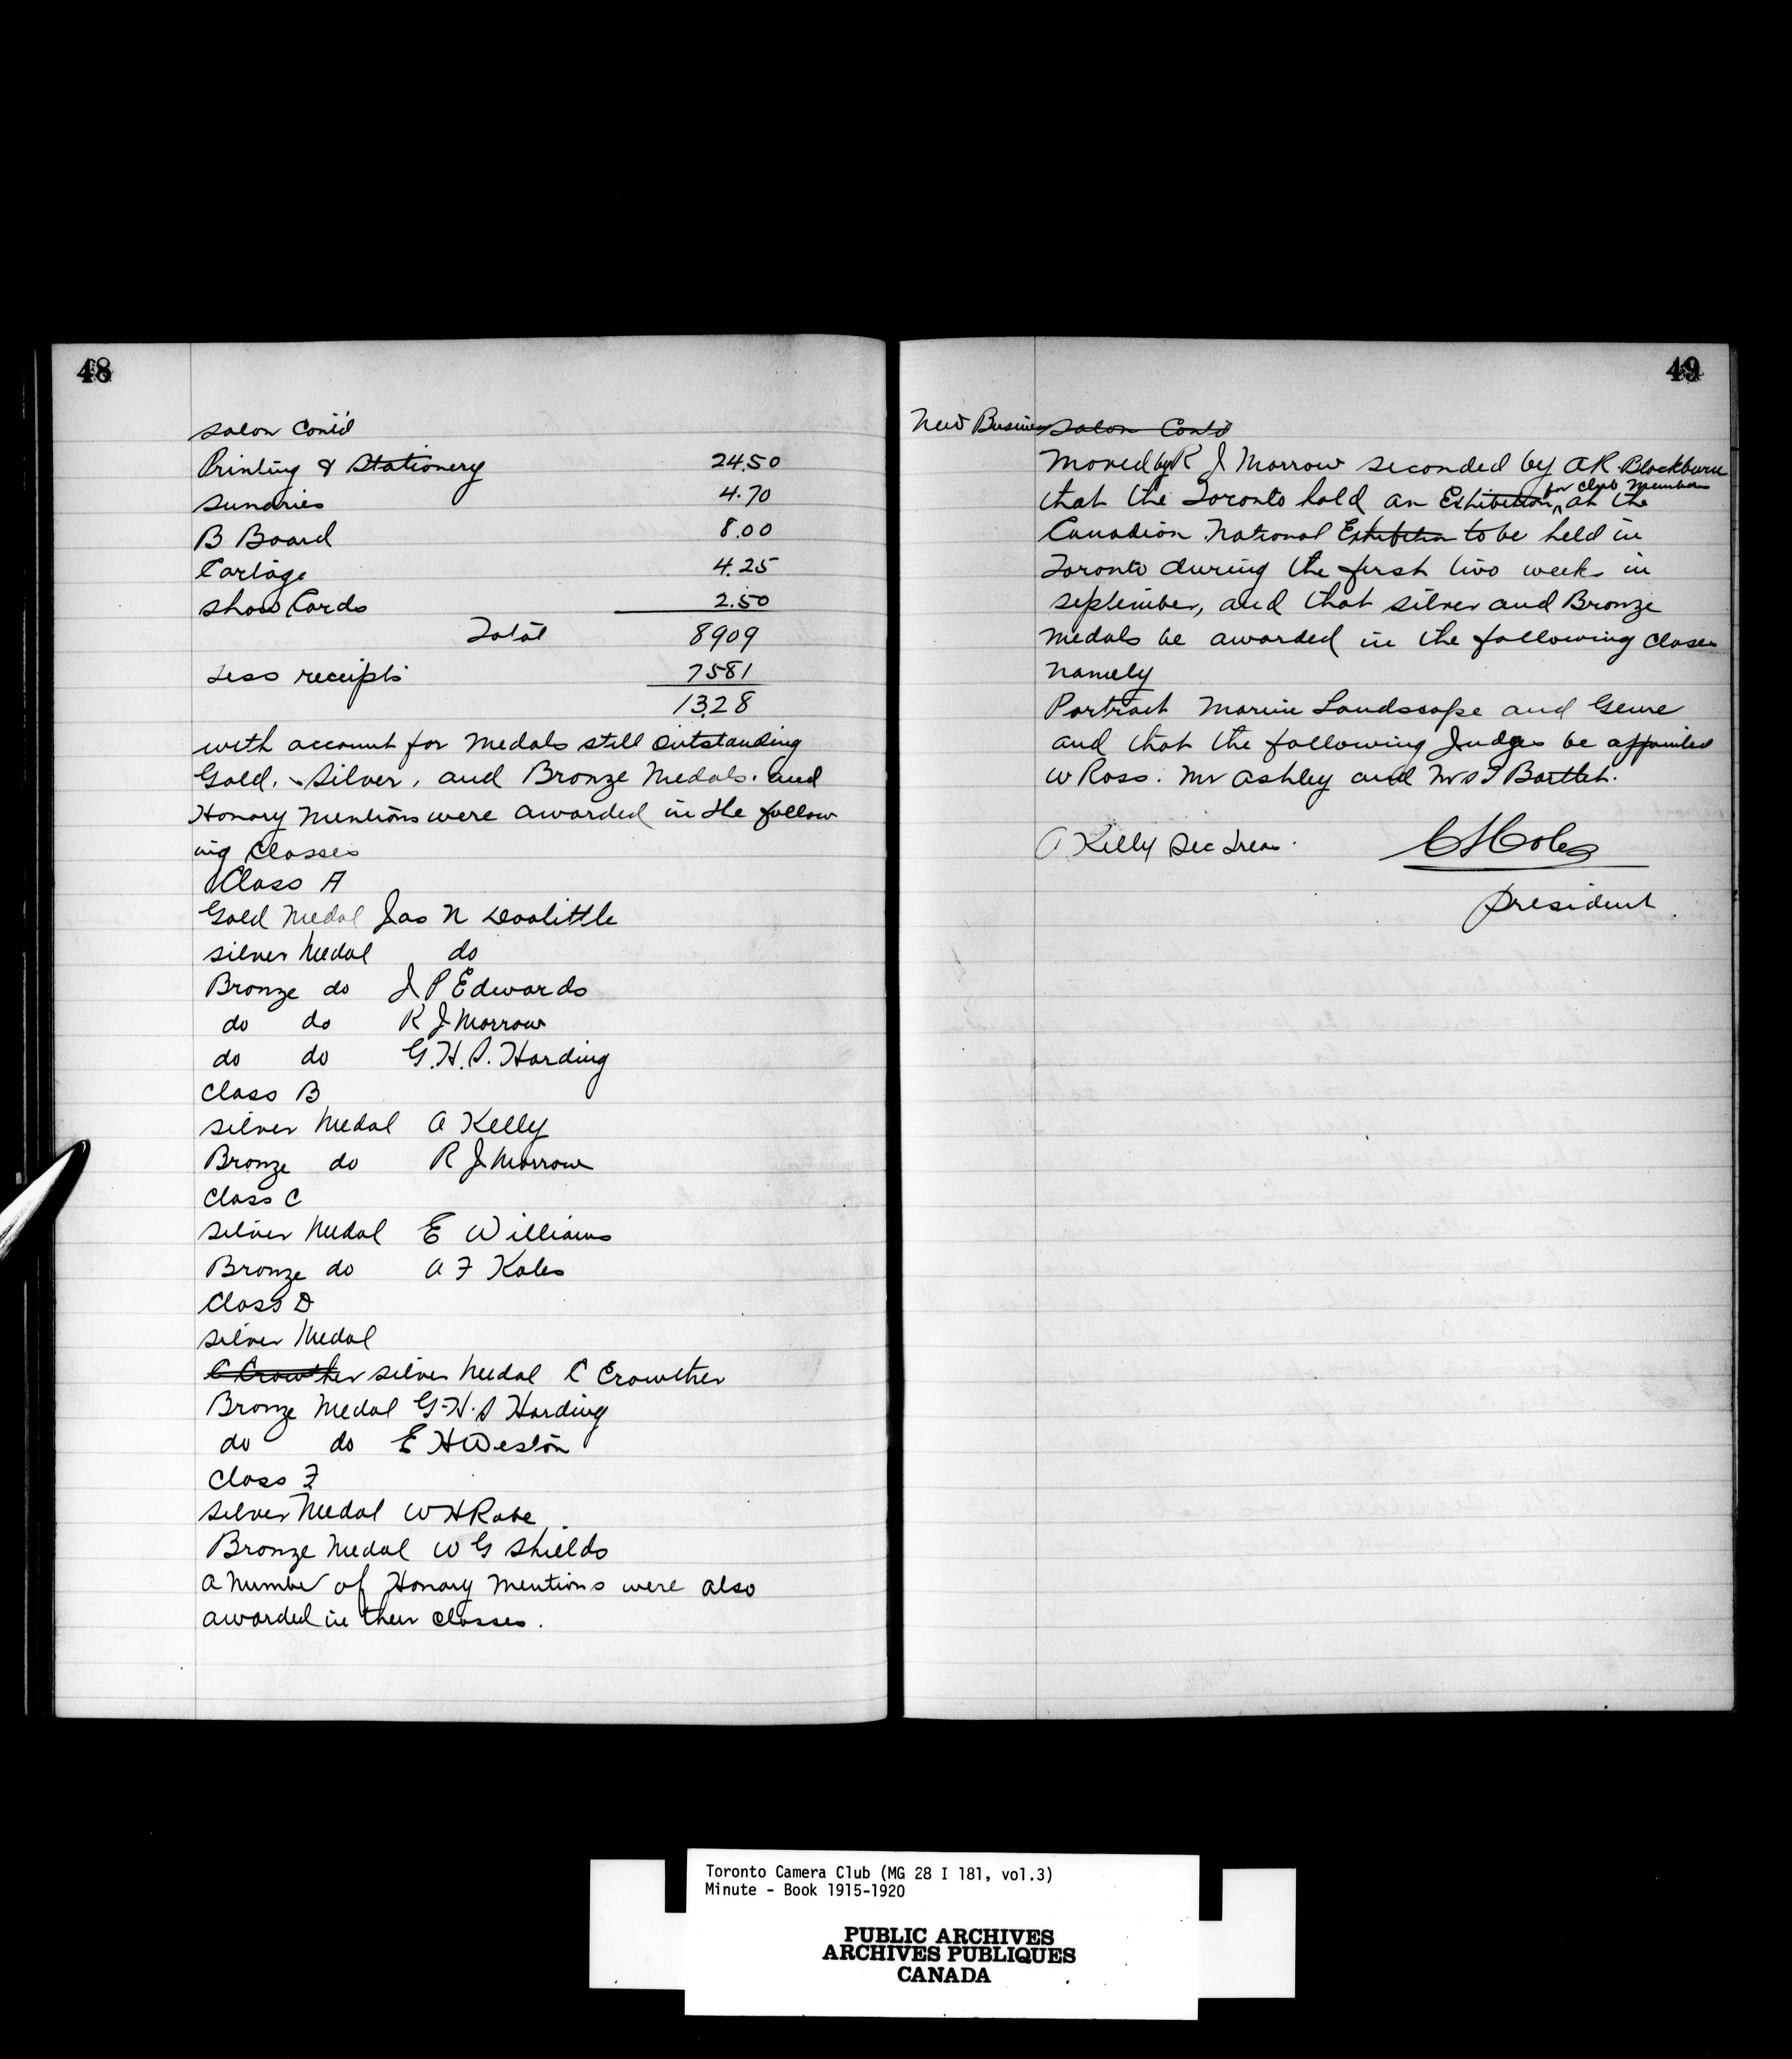 48
Salon Cont'd
Printing & Stationery 24.50
Sundries 4.70
B Board 8.00
Cartage 4.25
Show Cards 2.50
Total 8909
Less receipts 7581
13.28
with account for Medals still outstanding
Gold, Silver, and Bronze Medals. and
Honary Mentions were awarded in the follow
ing Classes
Class A
Gold Medal Jas N Doolittle
Silver Medal do
Bronze do J P Edwards
do do R J Morrow
do do G.H.S. Harding
Class B
Silver Medal A Kelly
Bronze do R J Morrow
Class C
Silver Medal E Williams
Bronze do A F Kales
Class D
Silver Medal
C Crowther Silver Medal C Crowther
Bronze Medal G.H.S Harding
do do E H Weston
Class F
Silver Medal W H Rabe
Bronze Medal W G Shields
A Number of Honary Mentions were also
awarded in their Classes.
49
New Business Salon Cont'd
Moved by R J Morrow seconded by A R Blackburn
that the Toronto hold an Exhibition for Club Members at the
Canadian National Exhibition to be held in
Toronto during the first two weeks in
September, and that silver and Bronze
Medals be awarded in the following Classes
Namely
Portrait Marine Landscape and Genre
and that the following Judges be appointed
W Ross. Mr Ashley and Bartlett.
A Kelly Sec Treas.
President
Toronto Camera Club (MG 28 I 181, vol.3)
Minute - Book 1915-1920
PUBLIC ARCHIVES
ARCHIVES PUBLIQUES
CANADA